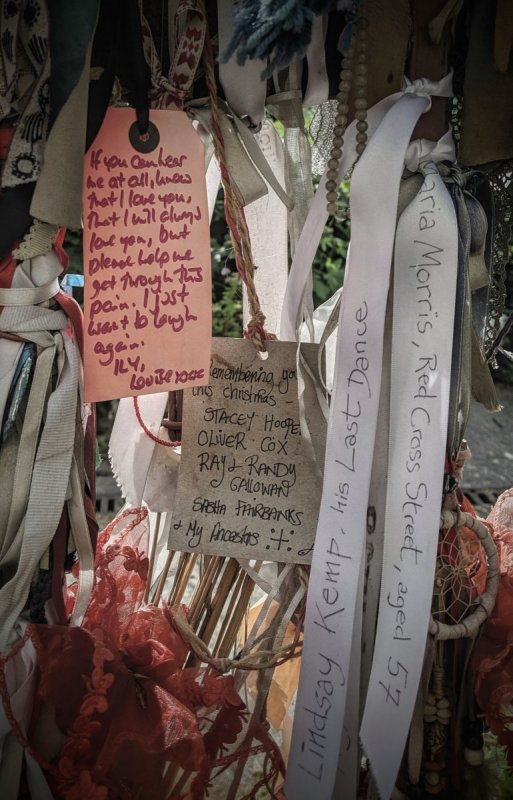 If you can hear
me at all, know
that I love you,
That I will always
love you, but
please help me
get through this
pain. I just
want to laugh
again.
ILY,
Remembering you
this christmas
STACEY HOOPE
OLIVER COX
RAY & RANDY
GALLOWAY
SASHA FAIRBANKS
& My Ancestors
Lindsay Kemp, his Last Dance
aria Morris, Red Cross Street, aged 57